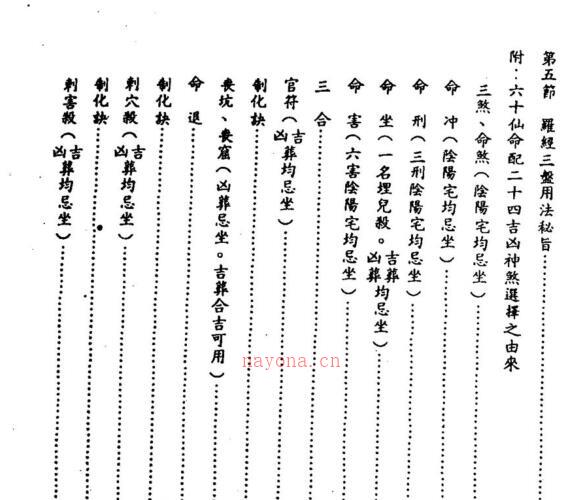 第五節 羅經三盤用法秘旨
附：六十仙命配二十四吉凶神煞選擇之由來
三煞、命煞（陰陽宅均忌坐）
命 冲（陰陽宅均忌坐）
命 刑（三刑陰陽宅均忌坐）
命 坐（一名埋兒殺。吉葬凶葬均忌坐）
命 害（六害陰陽宅均忌坐）
三 合
官符（吉凶葬均忌坐）
制化訣
喪坑、喪窟（凶葬忌坐。吉葬合吉可用）
命 退
制化訣
刺穴殺（吉凶葬均忌坐）
制化訣
刺害殺（吉凶葬均忌坐）
nayona.cn